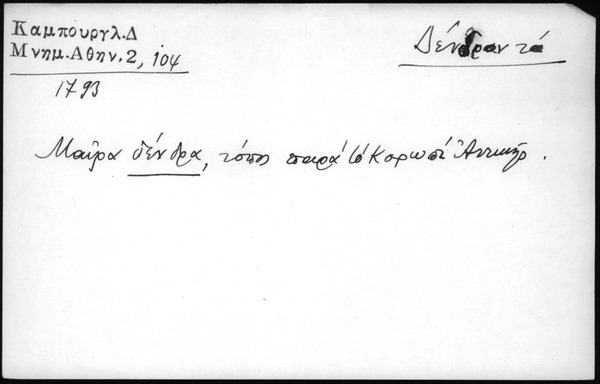 Καμπουργλ.Δ
Μνημ.Αθην.2, 104
1793
Δένδραν τά
Μαῦρα δένδρα, τόπος παρά τό Κορωπί Ἀττικῆς.